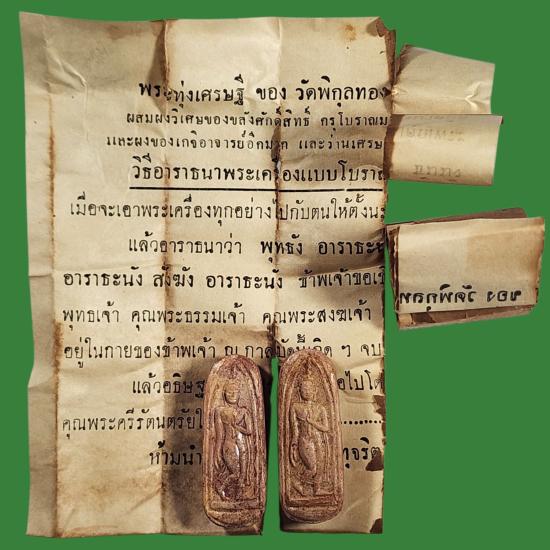 พระทุ่งเศรษฐี ของ วัดพิกุลทอง
ผสมผงวิเศษของขลังศักดิ์สิทธ์ กรุโบราณ
และผงของเกจิอาจารย์อีกมาก และว่านเศรษ
วิธีอาราธนาพระเครื่องแบบโบราณ
เมื่อจะเอาพระเครื่องทุกอย่างไปกับตนให้ตั้งนะ
แล้วอาราธนาว่า พุทธัง อาราธะ
อาราธะนัง สังฆัง อาราธะนัง ข้าพเจ้าขอเชิ
พุทธเจ้า คุณพระธรรมเจ้า คุณพระสงฆเจ้า
อยู่ในกายของข้าพเจ้า ณ กาลบัดนี้เถิด ๆ จบ
แล้วอธิษฐ อไปโด
คุณพระศรีรัตนตรัยใ
ห้ามนำ ทุจริต
ของ วัดพิกุลท